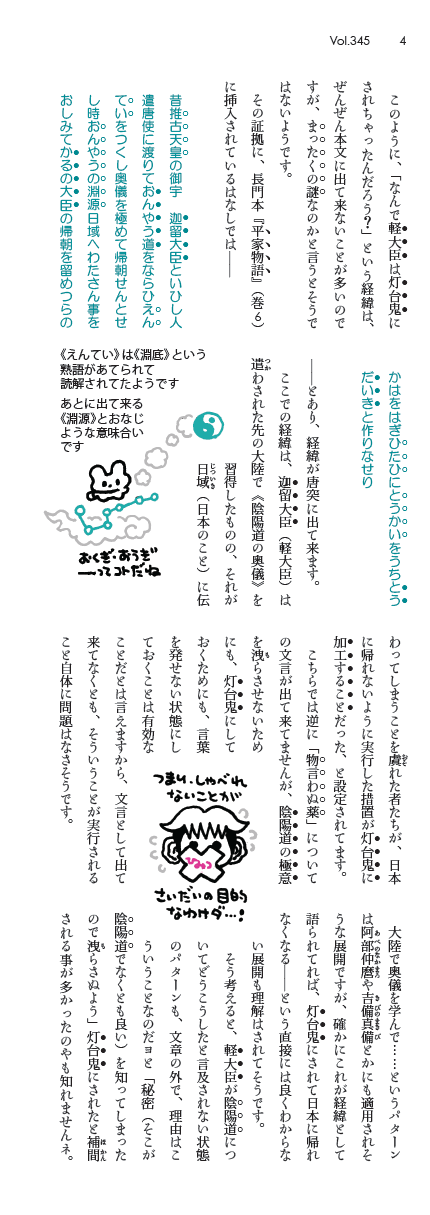 Vol.345　4
　このように、「なんで軽大臣は灯台鬼に
されちゃったんだろう?」という経緯は、
ぜんぜん本文に出て来ないことが多いので
すが、まったくの謎なのかと言うとそうで
はないようです。
　その証拠に、長門本『平家物語』（巻6）
に挿入されているはなしでは――
昔推古天皇の御宇　迦留大臣といひし人
遣唐使に渡りておんやう道をならひえん
ていをつくし奥儀を極めて帰朝せんとせ
し時おんやうの淵源日域へわたさん事を
おしみてかるの大臣の帰朝を留めつらの
かはをはぎひたひにとうかいをうちとう
だいきと作りなせり
――とあり、経緯が唐突に出て来ます。
　ここでの経緯は、迦留大臣（軽大臣）は
遣わされた先の大陸で《陰陽道の奥儀》を
つか
習得したものの、それが
日域（日本のこと）に伝
じついき
《えんてい》は《淵底》という
熟語があてられて
読解されてたようです
あとに出て来る
《淵源》とおなじ
ような意味合い
です
おくぎ・あうぎ
――ってコトだね
わってしまうことを虞れた者たちが、日本
おそ
に帰れないように実行した措置が灯台鬼に
加工することだった、と設定されてます。
　こちらでは逆に「物言わぬ薬」について
の文言が出て来てませんが、陰陽道の極意
を洩らさせないため
も
にも、灯台鬼にして
おくためにも、言葉
を発せない状態にし
ておくことは有効な
ことだとは言えますから、文言として出て
来てなくとも、そういうことが実行される
こと自体に問題はなさそうです。
つまり、しゃべれ
ないことが
ひみつ
さいだいの目的
なわけダ…!
　大陸で奥儀を学んで……というパターン
は阿部仲麿や吉備真備とかにも適用されそ
あべのなかまろ
きびのまきび
うな展開ですが、確かにこれが経緯として
語られてれば、灯台鬼にされて日本に帰れ
なくなる――という直接には良くわからな
い展開も理解はされてそうです。
　そう考えると、軽大臣が陰陽道につ
いてどうこうしたと言及されない状態
のパターンも、文章の外で、理由はこ
ういうことなのだヨと「秘密（そこが
陰陽道でなくとも良い）を知ってしまった
ので洩らさぬよう」灯台鬼にされたと補間
も
ほかん
される事が多かったのやも知れませんネ。